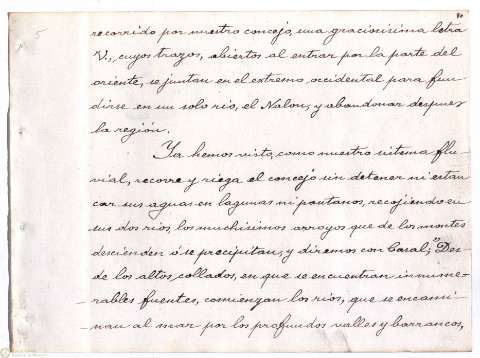 5
recorrido por nuestro concejo, una graciosisima letra
V., cuyos trazos, abiertos al entrar por la parte del
oriente, se juntan en el extremo, occidental para fun
dirse en un solo rio, el Nalon; y abandonar despues
la región.
Ya hemos visto, como nuestro sistema flu-
vial, recorre y riega el concejo sin detener ni estan
car sus aguas en lagunas ni pantanos, recojiendo en
sus dos rios, los muchisimos arroyos que de los montes
descienden ó se precipitan; y diremos con Casal; "Des-
de los altos, collados, en que se encuentran innume-
rables fuentes, comienzan los rios, que se encami-
nan al mar por los profundos valles y barrancos,